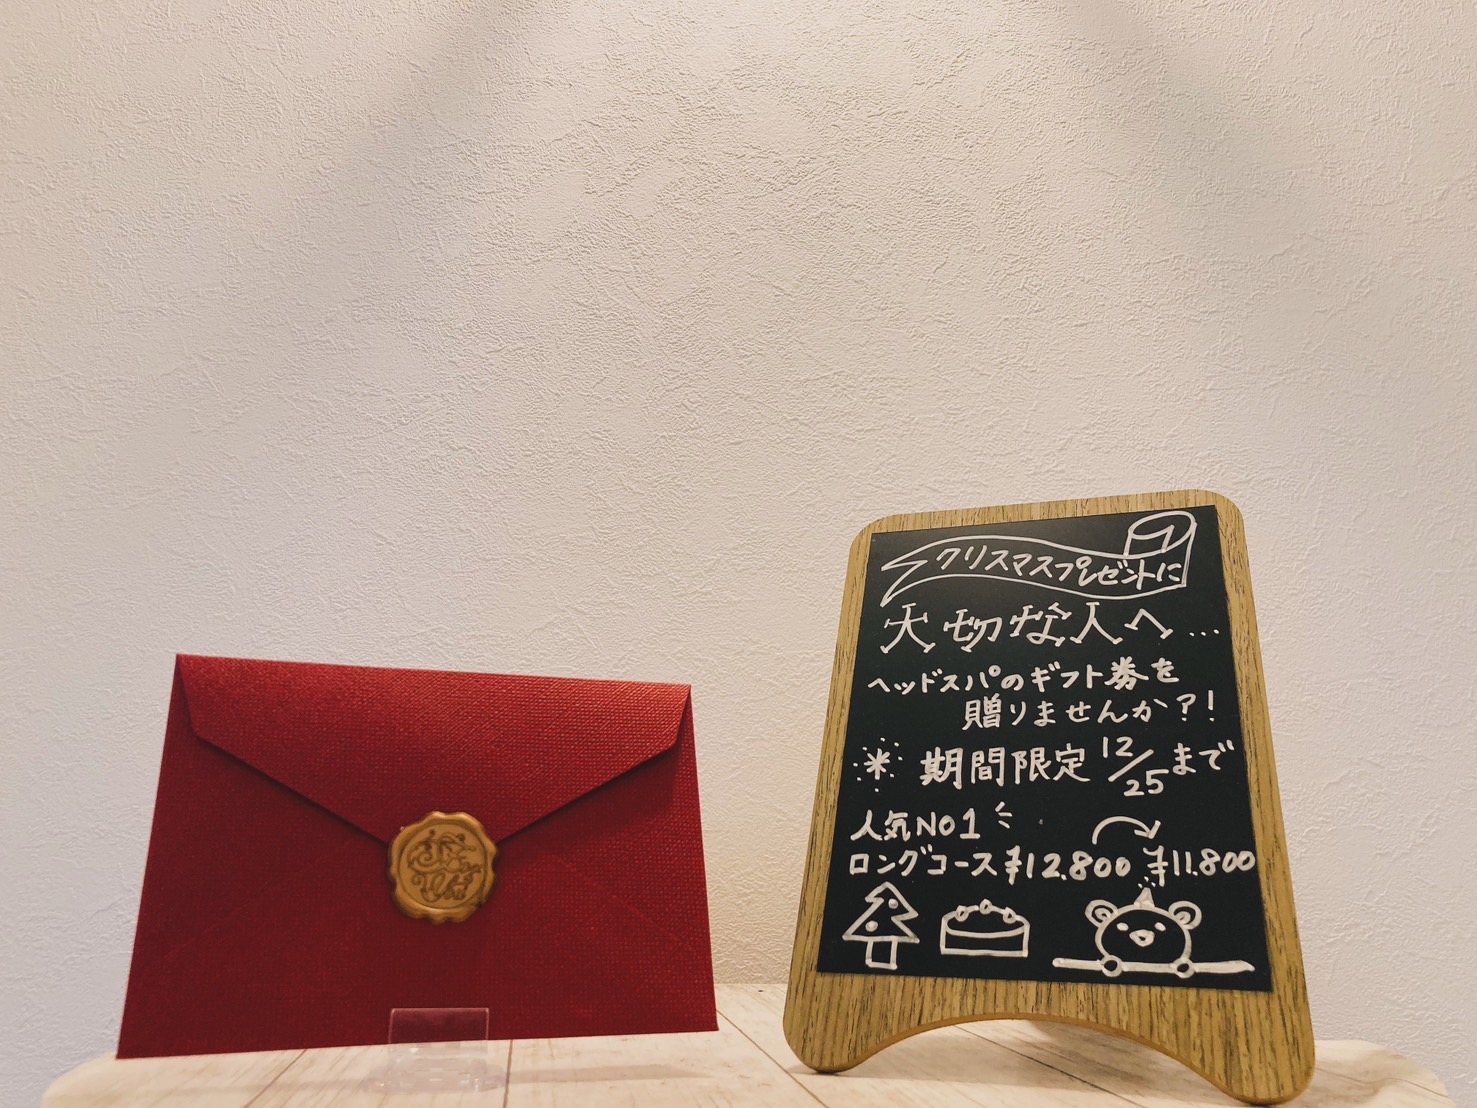 クリスマスプレゼントに
大切な人へ...
ヘッドスパのギフト券を
贈りませんか?!
* 期間限定 12/25まで
人気NO1
ロングコース ¥12.800 ¥11.800